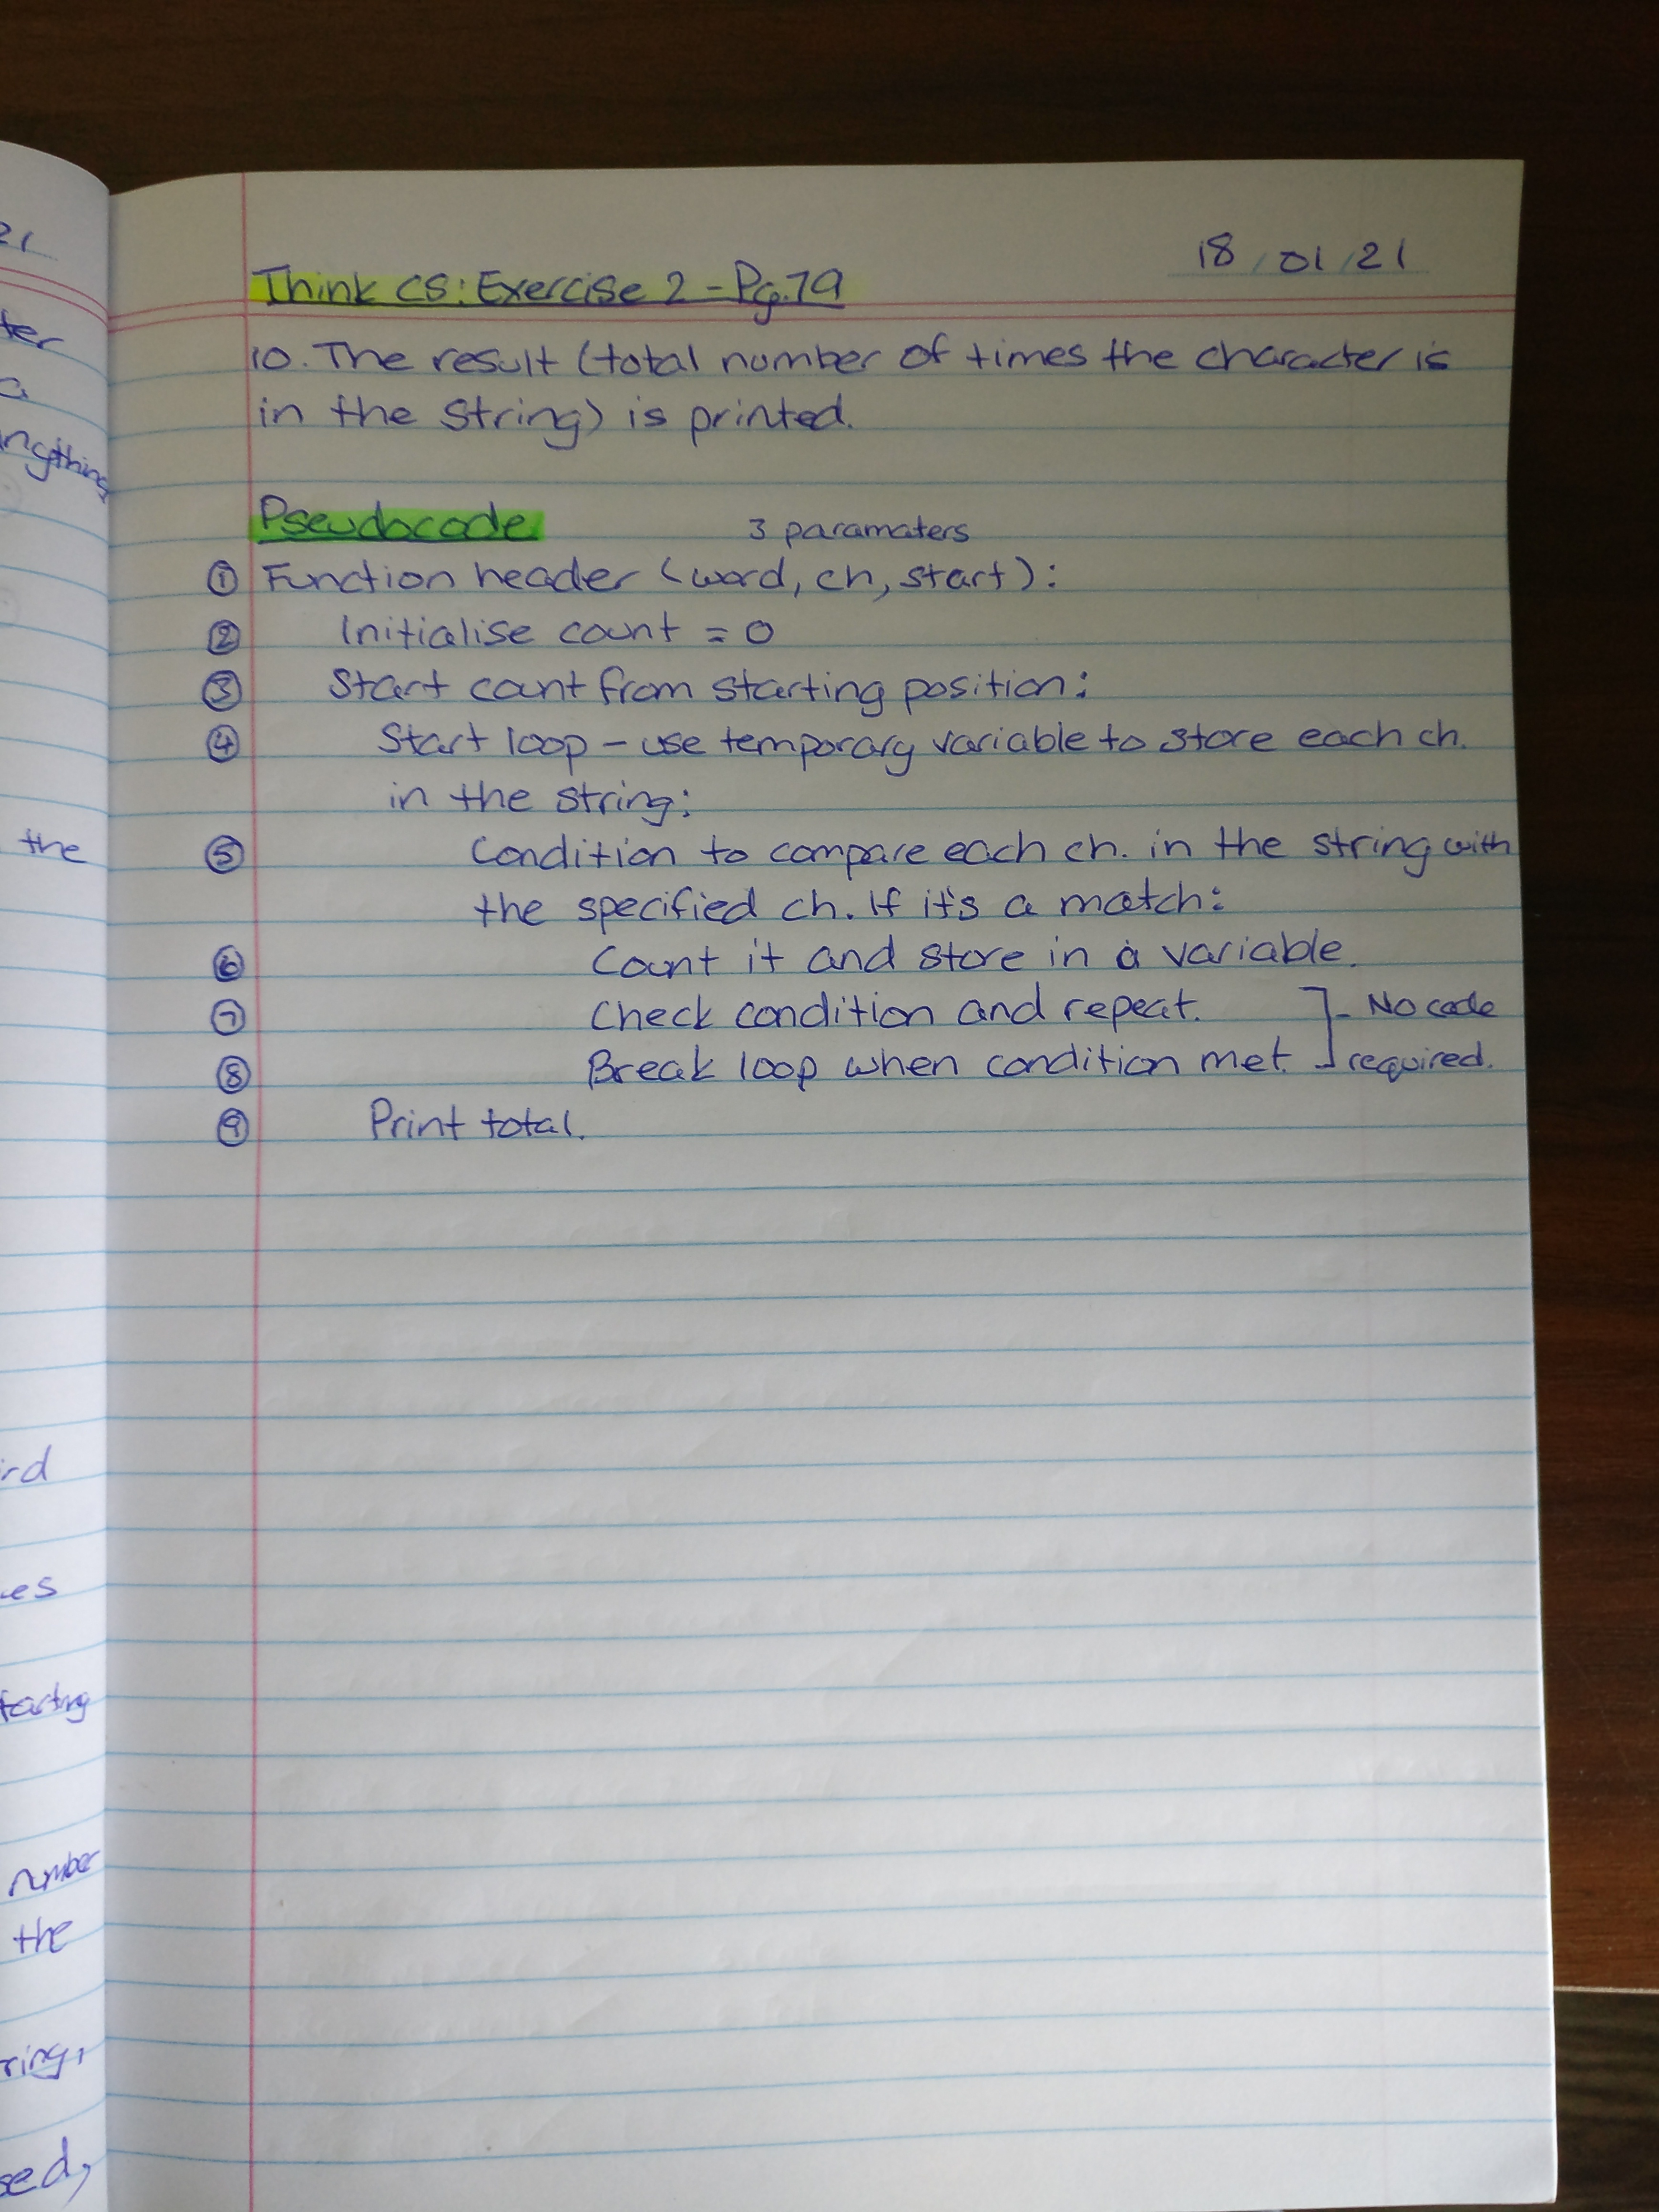 21
ter
a
ngthing
the
ird
es
tarting
number
the
ring,
sed,
18/01/21
Think CS: Exercise 2 - Pg.79
10. The result (total number of times the character is
in the string) is printed.
Pseudocode
3 paramaters
① Function header (word, ch, start):
② Initialise count = 0
③ Start count from starting position:
④ Start loop - use temporary variable to store each ch.
in the string:
⑤ Condition to compare each ch. in the string with
the specified ch. If it's a match:
⑥ Count it and store in a variable.
⑦ Check condition and repeat. ] - No code
⑧ Break loop when condition met. required.
⑨ Print total.